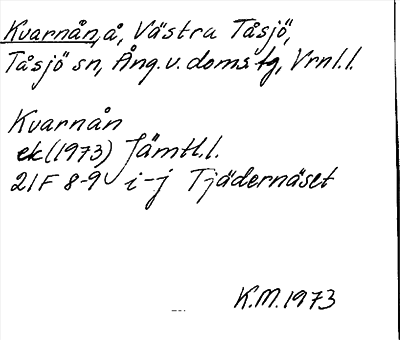 Kvarnån, å, Västra Tåsjö,
Tåsjö sn, Ång. v. doms tg, Vrnl. l.
Kvarnån
ek (1973) Jämtl. l.
21F 8-9 i-j Tjädernäset
K.M. 1973